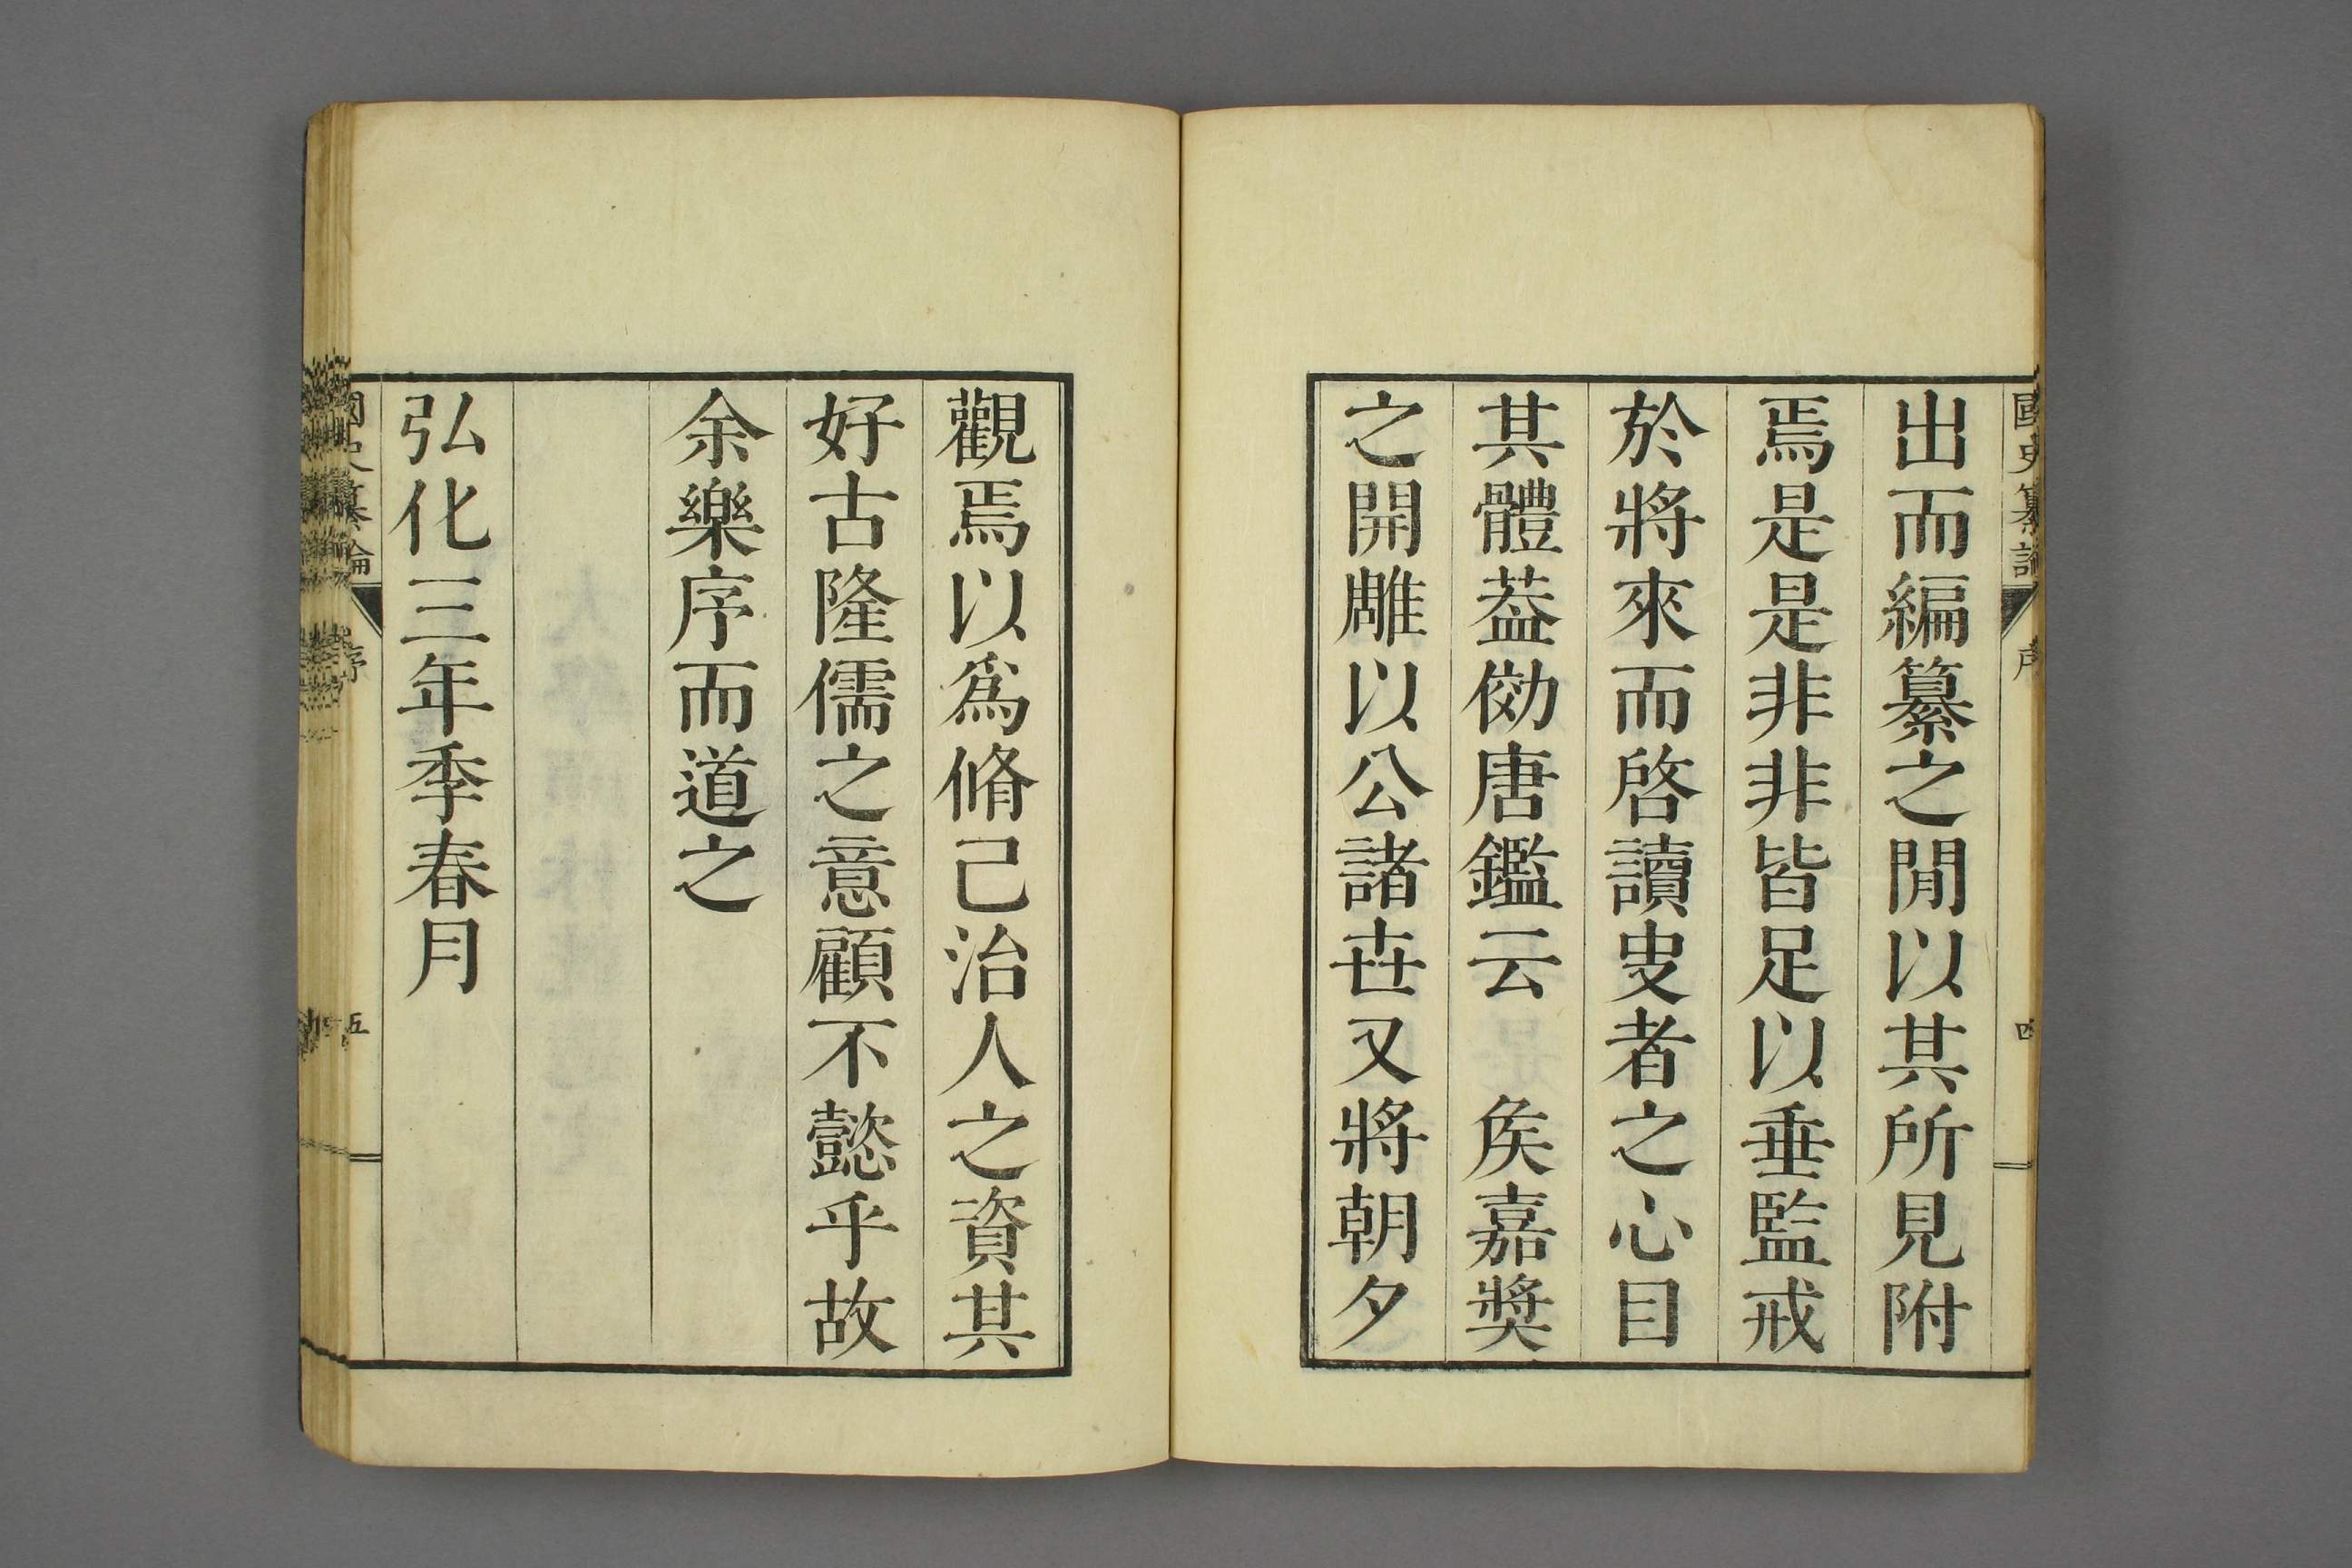 國史纂論
序
四
出而編纂之間以其所見附
焉是是非非皆足以垂監戒
於將來而啓讀史者之心目
其體葢傚唐鑑云　矦嘉奬
之開雕以公諸世又將朝夕
觀焉以爲脩己治人之資其
好古隆儒之意顧不懿乎故
余樂序而道之
弘化三年季春月
國史纂論
序
五